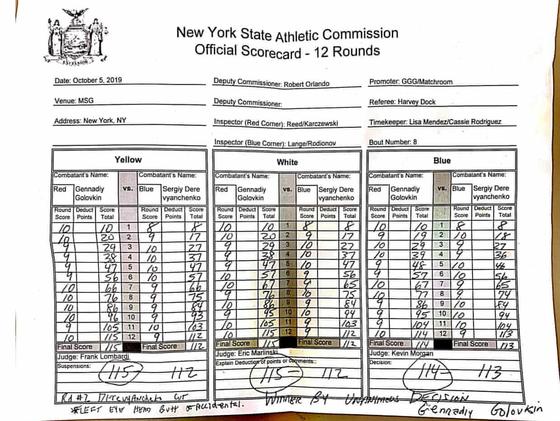 New York State Athletic Commission
Official Scorecard - 12 Rounds
EXCELSIOR
Date: October 5, 2019 Deputy Commissioner: Robert Orlando Promoter: GGG/Matchroom
Venue: MSG Deputy Commissioner: Referee: Harvey Dock
Address: New York, NY Inspector (Red Corner): Reed/Karczewski Timekeeper: Lisa Mendez/Cassie Rodriguez
Inspector (Blue Corner): Lange/Rodionov Bout Number: 8
Yellow White Blue
Combatant's Name: Combatant's Name: Combatant's Name: Combatant's Name: Combatant's Name: Combatant's Name:
Red Gennadiy Golovkin vs. Blue Sergiy Dere vyanchenko Red Gennadiy Golovkin vs. Blue Sergiy Dere vyanchenko Red Gennadiy Golovkin vs. Blue Sergiy Dere vyanchenko
Round Score Deduct Points Score Total Round Score Deduct Points Score Total Round Score Deduct Points Score Total Round Score Deduct Points Score Total Round Score Deduct Points Score Total Round Score Deduct Points Score Total
10 10 1 8 8 10 10 1 8 8 10 10 1 8 8
10 20 2 9 17 10 20 2 9 17 9 19 2 10 18
9 29 3 10 27 9 29 3 10 27 10 29 3 9 27
9 38 4 10 37 9 38 4 10 37 10 39 4 9 36
9 47 5 10 47 9 47 5 10 47 9 48 5 10 46
10 57 6 10 57 6 9 56 9 57 6 10 56
66 7 66 10 67 7 9 65 10 67 7 9 65
10 76 8 9 75 9 76 8 10 75 8 9 74
10 86 9 9 84 10 86 9 9 84 86 9 10 84
10 96 10 9 93 9 95 10 10 94 9 95 10 10 94
9 105 11 10 103 10 105 11 9 103 11
10 115 12 9 112 10 115 12 9 112 10 114 12 9 113
Final Score 115 Final Score 112 Final Score 115 Final Score 112 Final Score 114 Final Score 113
Judge: Frank Lombardi Judge: Eric Marlinski Judge: Kevin Morgan
Suspensions: Explain Deduction of points or comments: Decision:
115 112 115 112 114 113
Rd #2 Derevyanchenko cut
Eye Head Butt Accidental.
Winner By Unanimous Decision
Gennadiy Golovkin